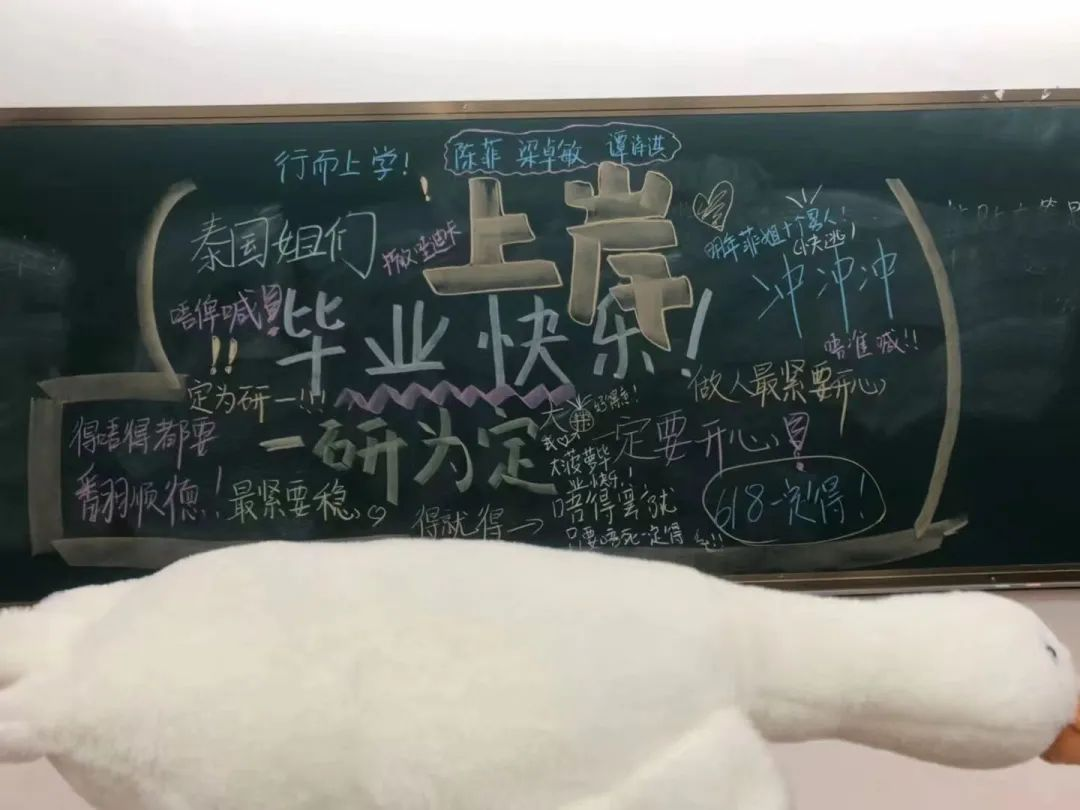 行而上学！
陈菲 梁卓敏 谭诗淇
上岸
泰国姐们
明年菲姐十个男人！
(快逃)
冲冲冲
唔俾喊！
!!
毕业快乐！
唔准喊!!
定为研一!!!
做人最紧要开心
得唔得都要
一研为定
大
好得意！
一定要开心！
翻顺德！
最紧要稳
大菠萝毕
业快乐！
得就得→
唔得寒就
618一定得！
只要唔死一定得